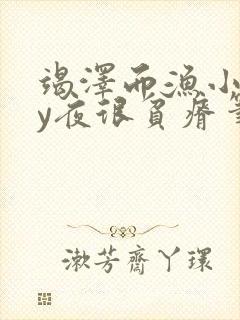 竭澤而漁小
y夜垠負瘠筆
漱芳齋丫環